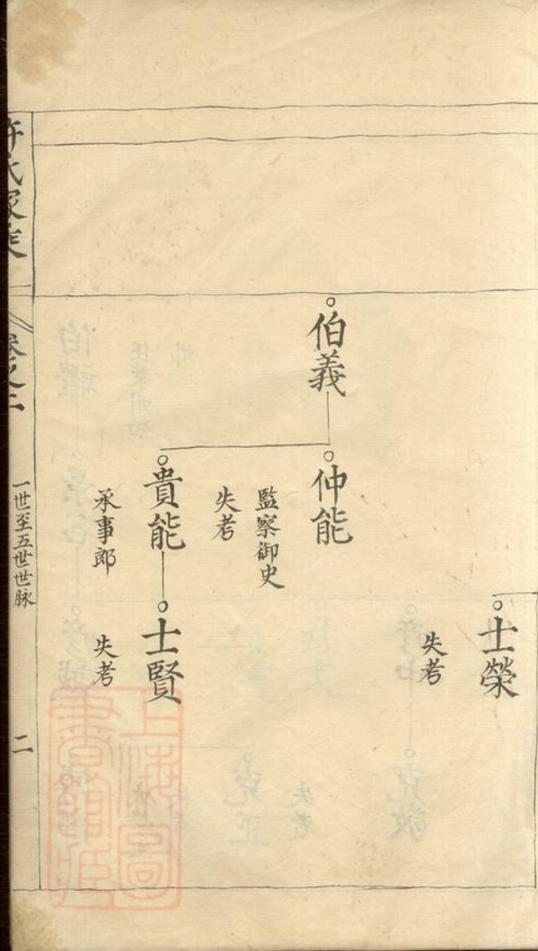 士榮
失考
伯義
仲能
監察御史
失考
貴能
承事郎
士賢
失考
許氏家乘
卷之二
一世至五世世脉
二